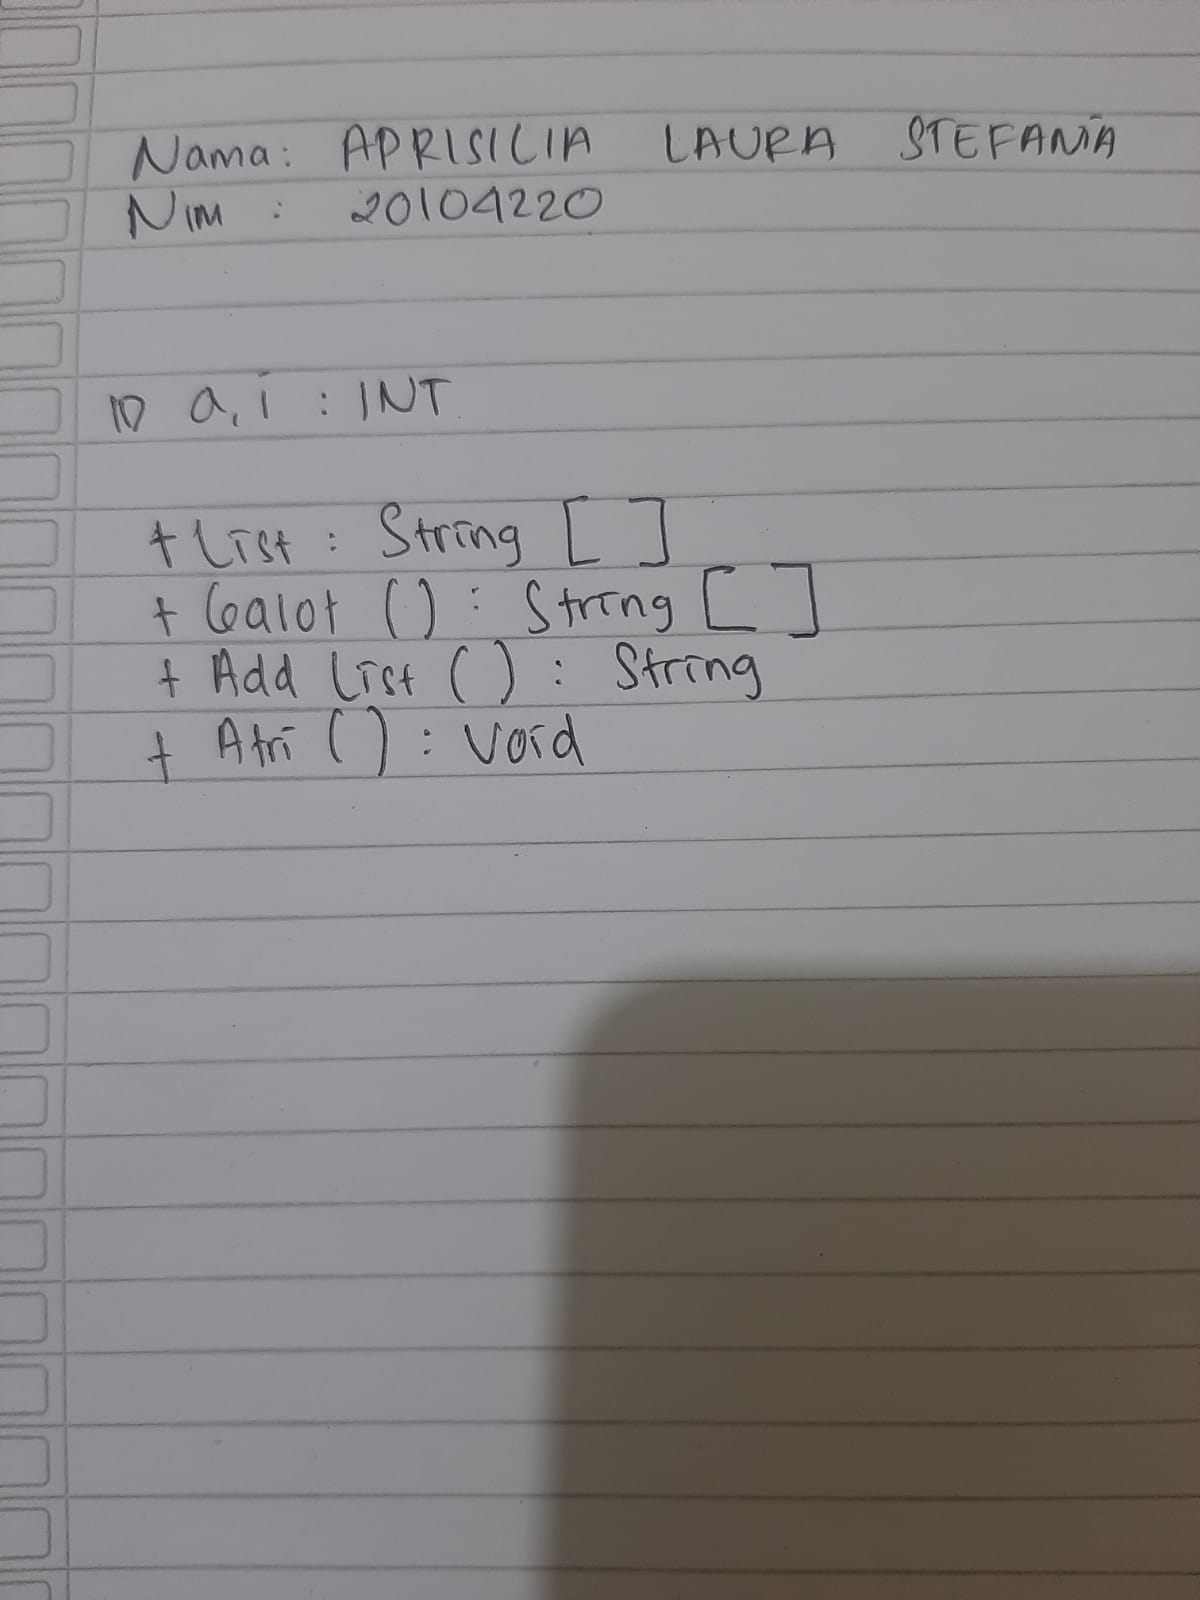 Nama: APRISILIA LAURA STEFANIA
NIM : 20104220
a, i : INT
+ List : String [ ]
+ Galot ( ) : String [ ]
+ Add List ( ) : String
+ Atri ( ) : Void